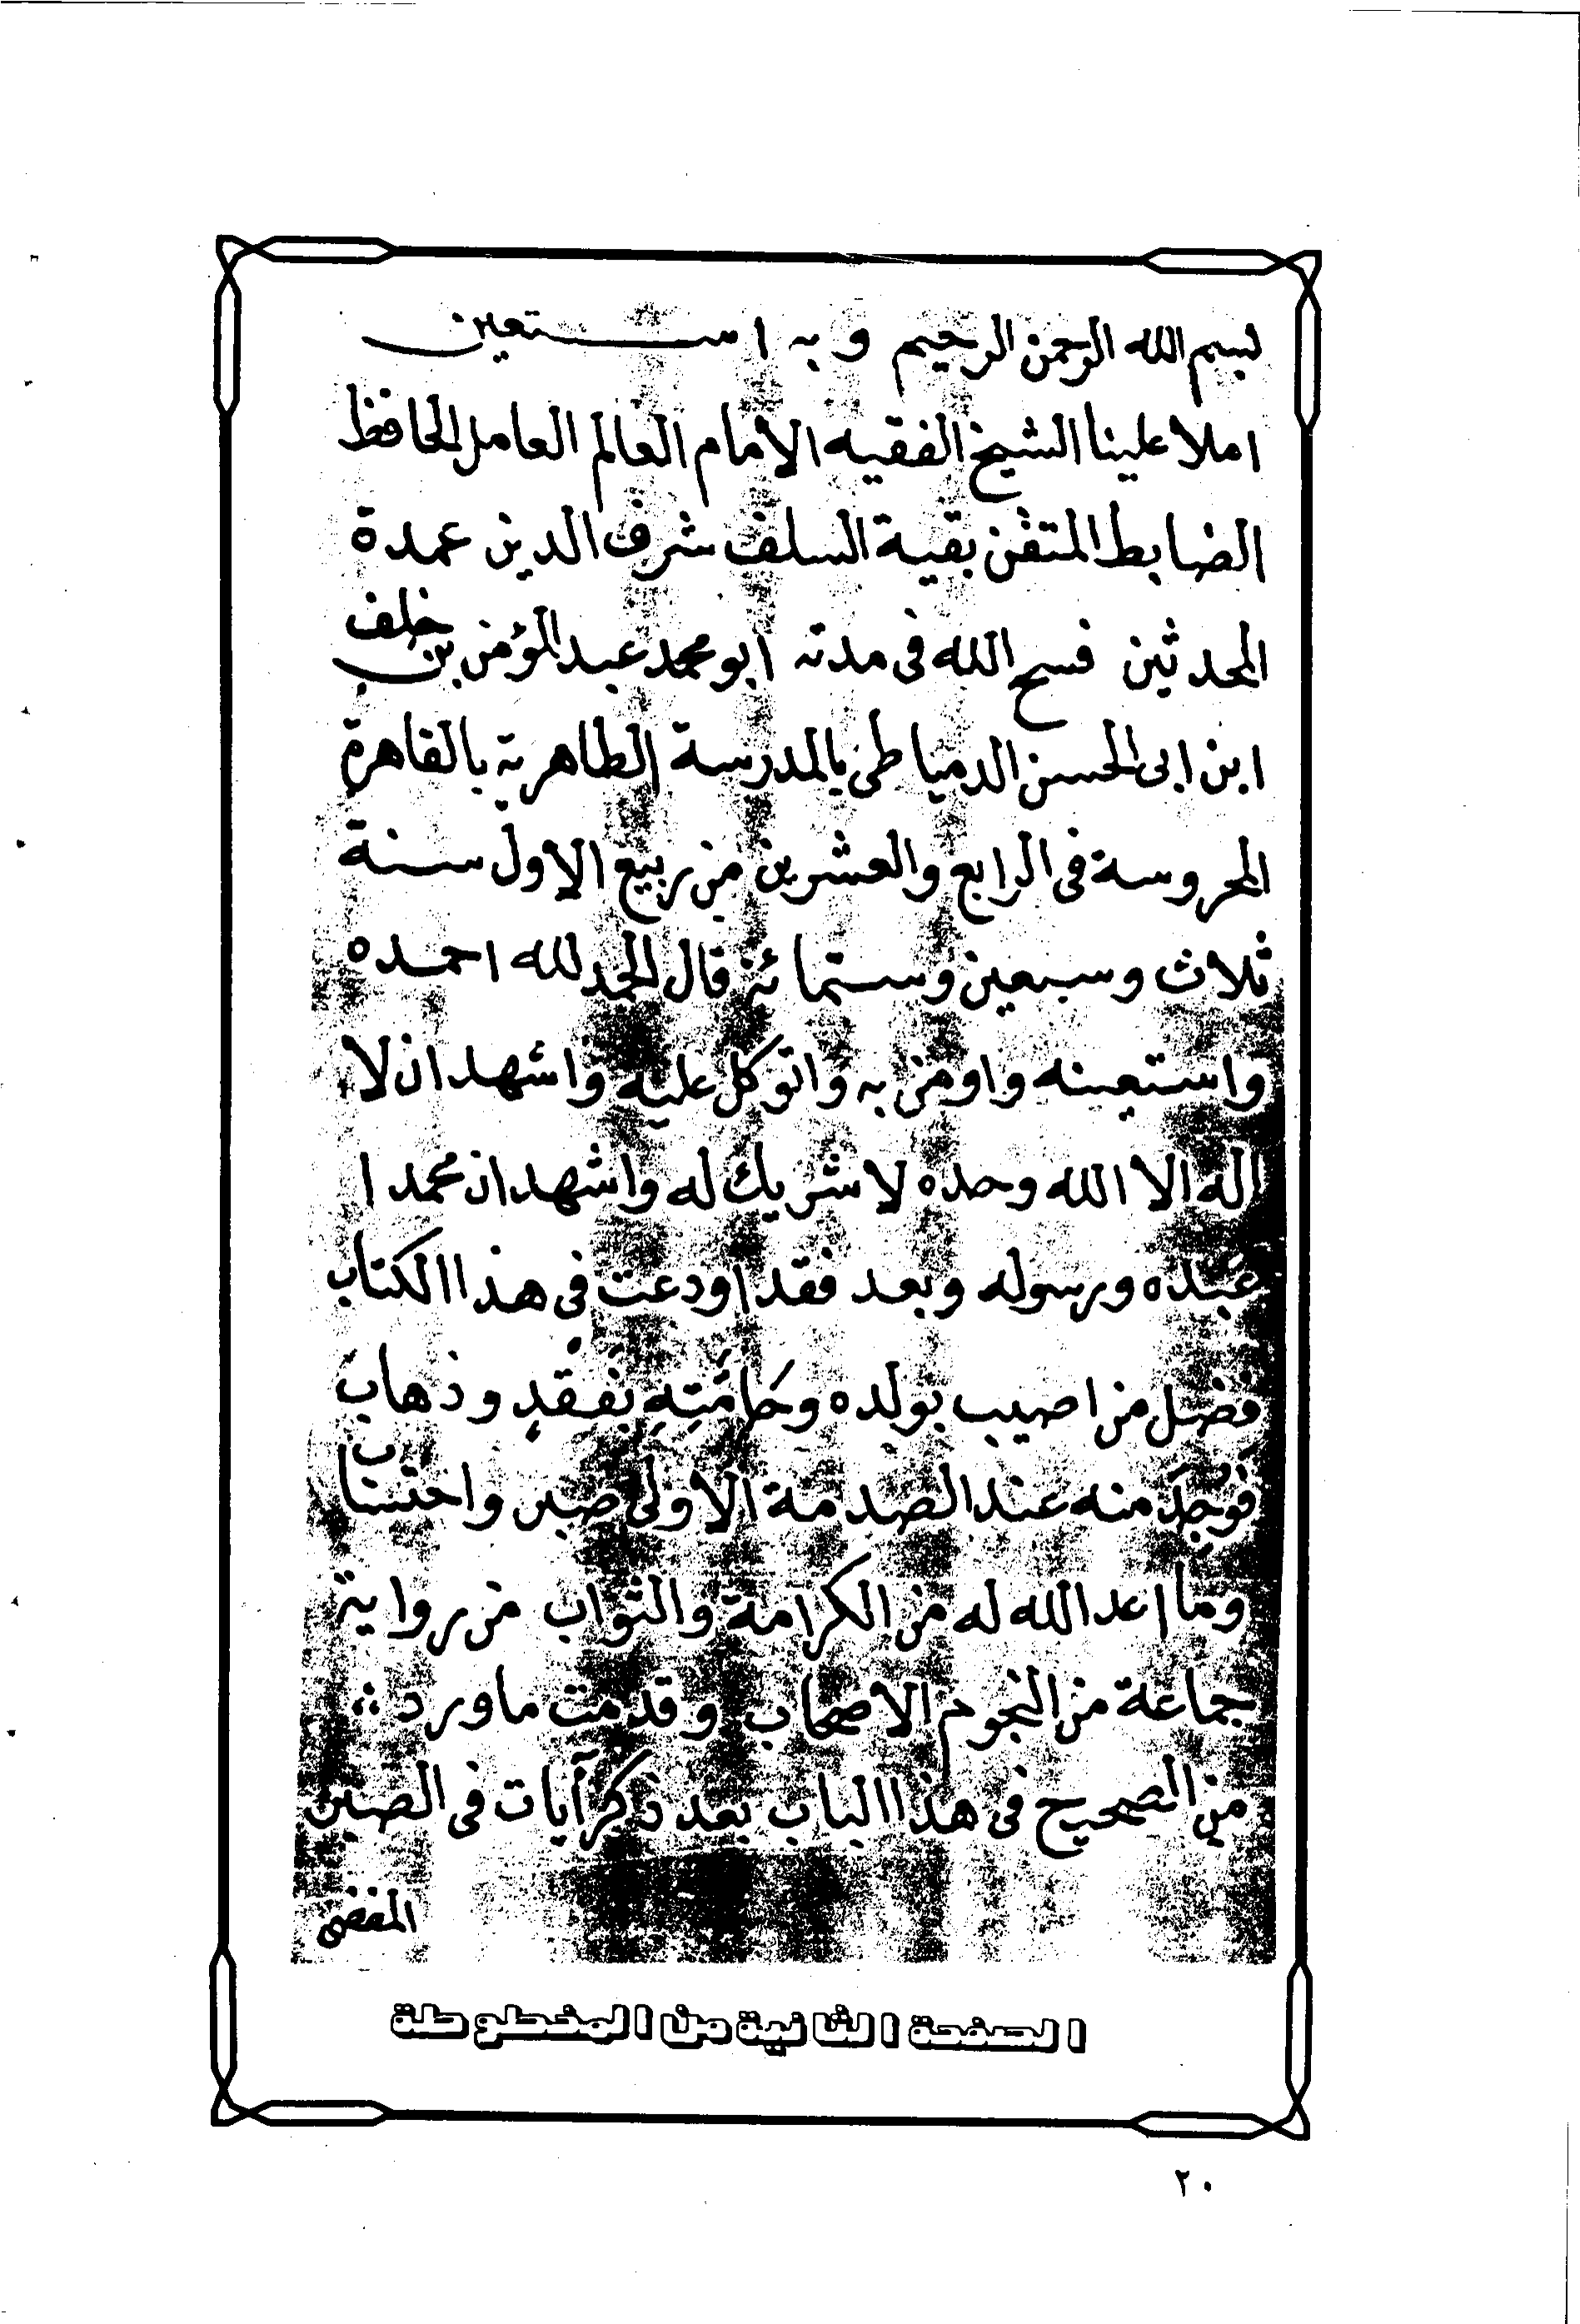 بسم الله الرحمن الرحيم وبه استعين
املا علينا الشيخ الفقيه الامام العالم العامل الحافظ
الضابط المتقن بقية السلف شرف الدين عمدة
المحدثين فسح الله فى مدته ابو محمد عبد المؤمن بن خلف
ابن ابى الحسن الدمياطى بالمدرسة الطاهرية بالقاهرة
المحروسة فى الرابع والعشرين من ربيع الاول سنة
ثلاث وسبعين وستمائة قال الحمد لله احمده
واستعينه واومن به واتوكل عليه واشهد ان لا
اله الا الله وحده لا شريك له واشهد ان محمدا
عبده ورسوله وبعد فقد اودعت فى هذا الكتاب
فضل من اصيب بولده وحامَّتِهِ بفقدٍ وذهاب
فوُجِدَ منه عند الصدمة الاولى صبر واحتساب
وما اعد الله له من الكرامة والثواب من رواية
جماعة من النجوم الاصحاب وقدمت ما ورد
من الصحيح فى هذا الباب بعد ذكر آيات فى الصبر
المفضى
الصفحة الثانية من المخطوطة
٢٠